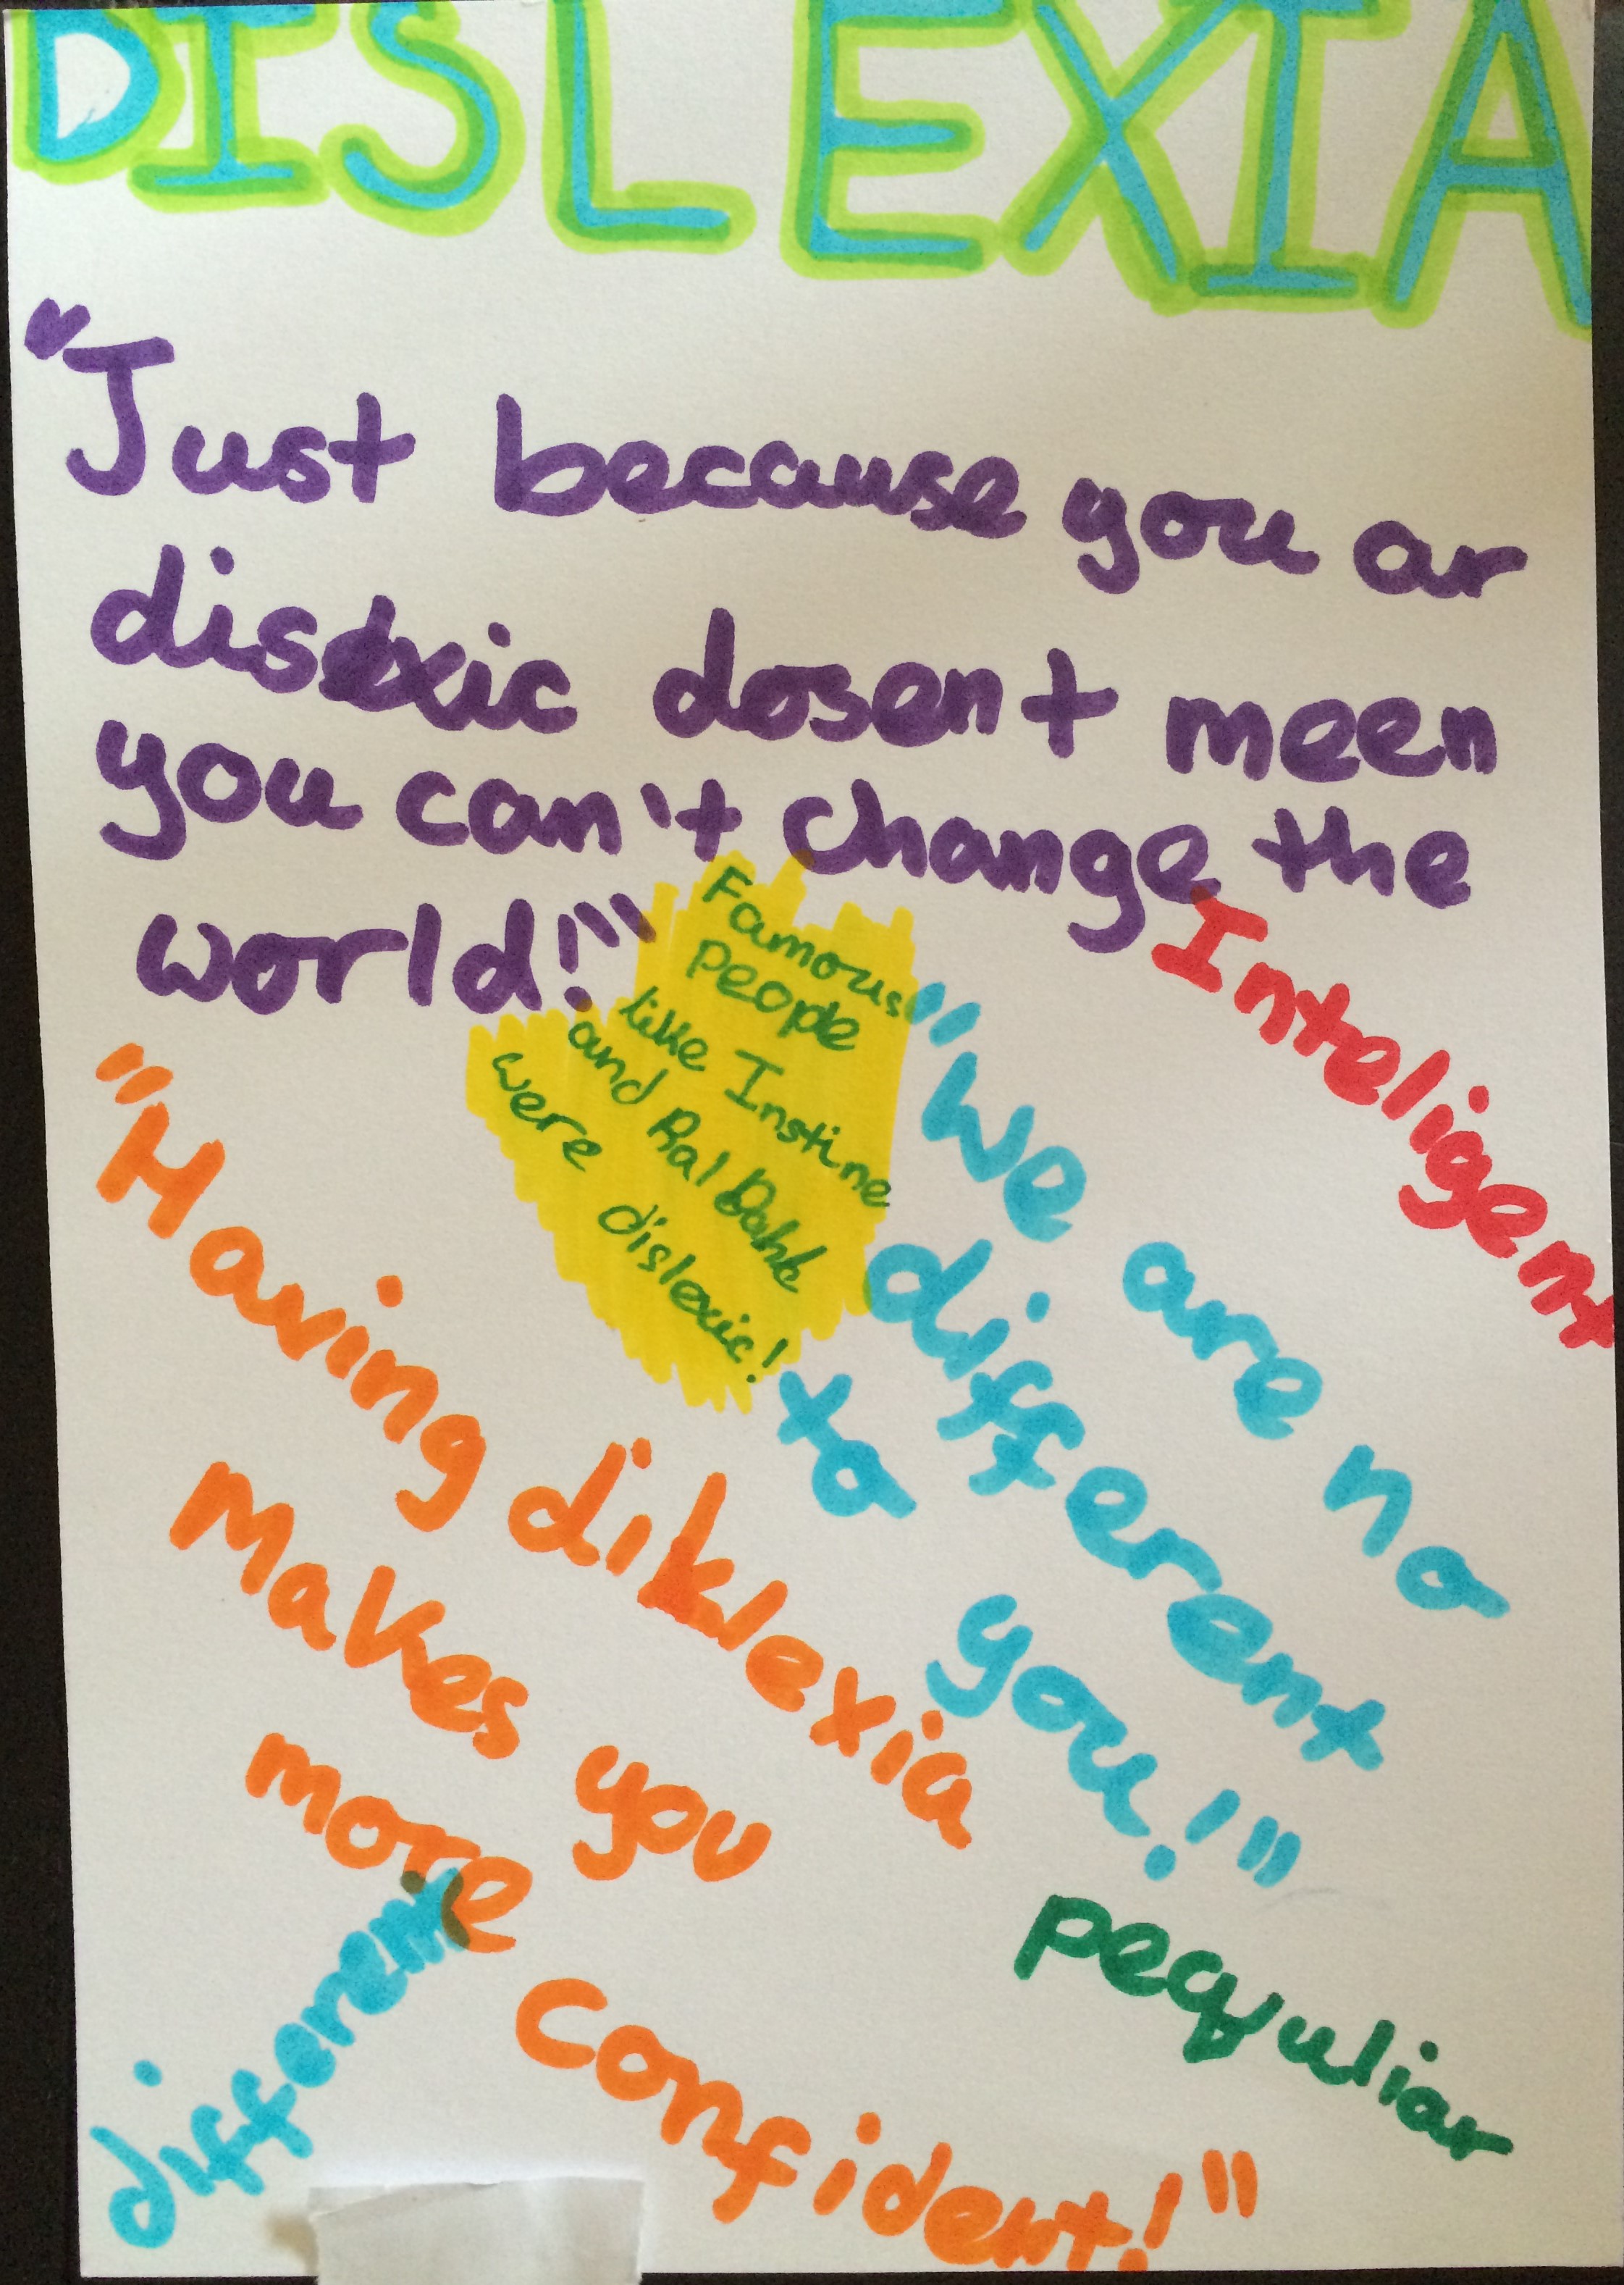 DISLEXIA
"Just because you ar
dislexic dosent meen
you can't change the
world!"
Famous
people
like Instine
and Ral Dahl
were dislexic!
Inteligent
"We are no
different
to you!"
"Having diklexia
Makes you
more
confident!"
different
pequliar